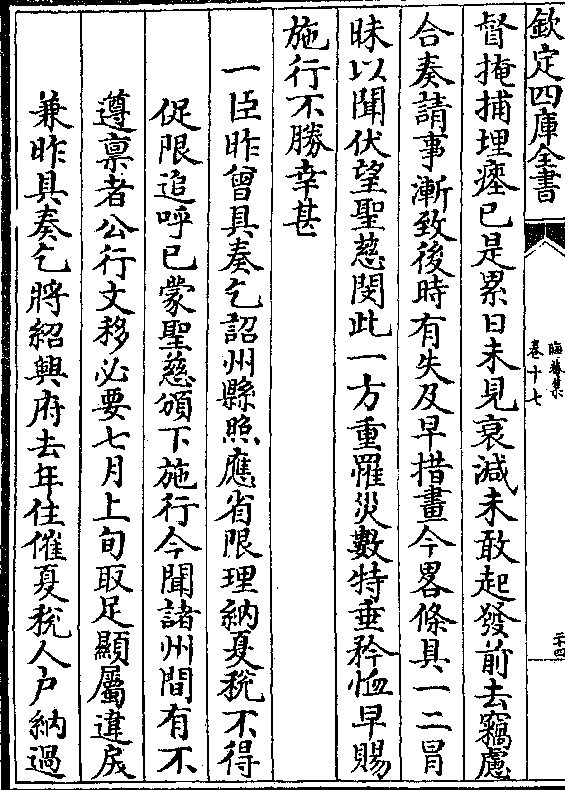 欽定四庫全書
晦菴集
卷十七
二十四
督掩捕埋瘞已是累日未見衰減未敢起發前去竊慮
合奏請事漸致後時有失及早措畫今畧條具一二冒
昧以聞伏望聖慈閔此一方重罹災數特垂矜恤早賜
施行不勝幸甚
一臣昨曾具奏乞詔州縣照應省限理納夏稅不得
促限追呼已蒙聖慈頒下施行今聞諸州間有不
遵禀者公行文移必要七月上旬取足顯屬違戾
兼昨具奏乞將紹興府去年住催夏稅人户納過